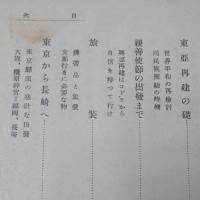 目次
東亞再建の礎
世界平和の再檢討
同民族握手の時機
親善使節の出發まで
興亞再建はコドモから
自信を持つて行け
旅裝
携帶品と服裝
支那行きに必要な物
東京から長崎へ
東京驛頭の悲壯な出發
大阪、橿原神宮、福岡、長崎